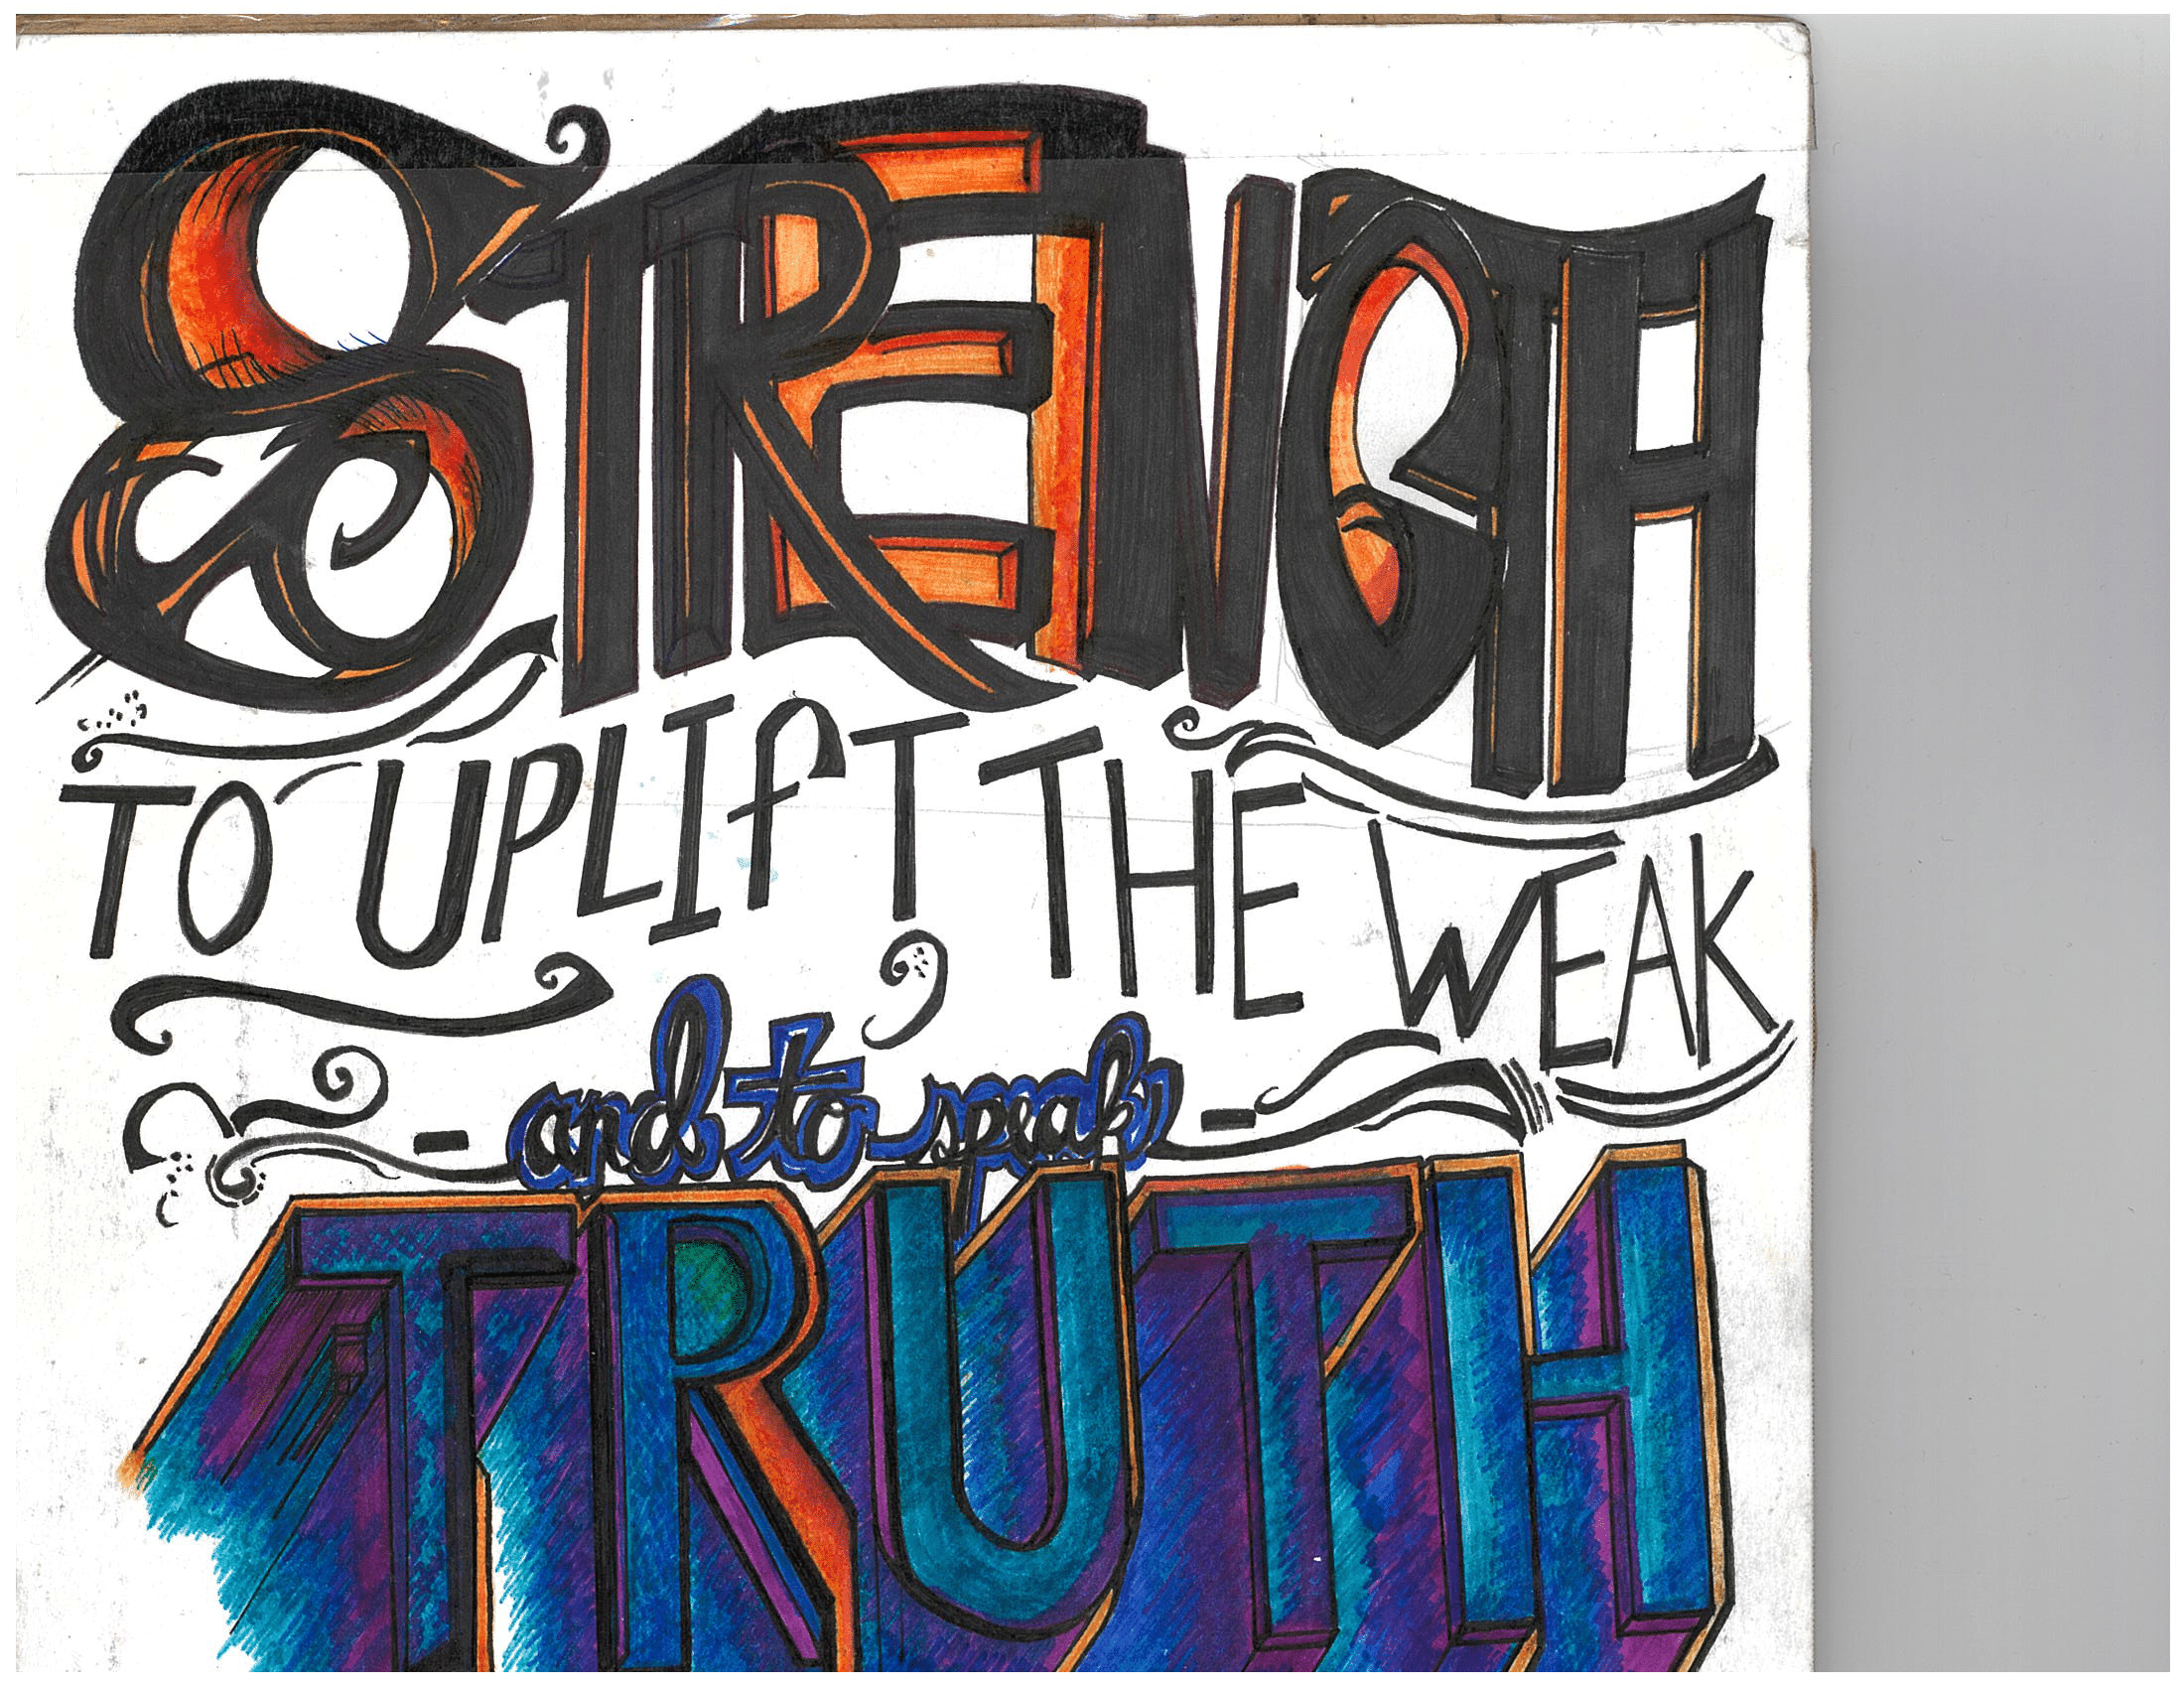 STRENGTH
TO UPLIfT THE WEAK
- and to speak -
TRUTH